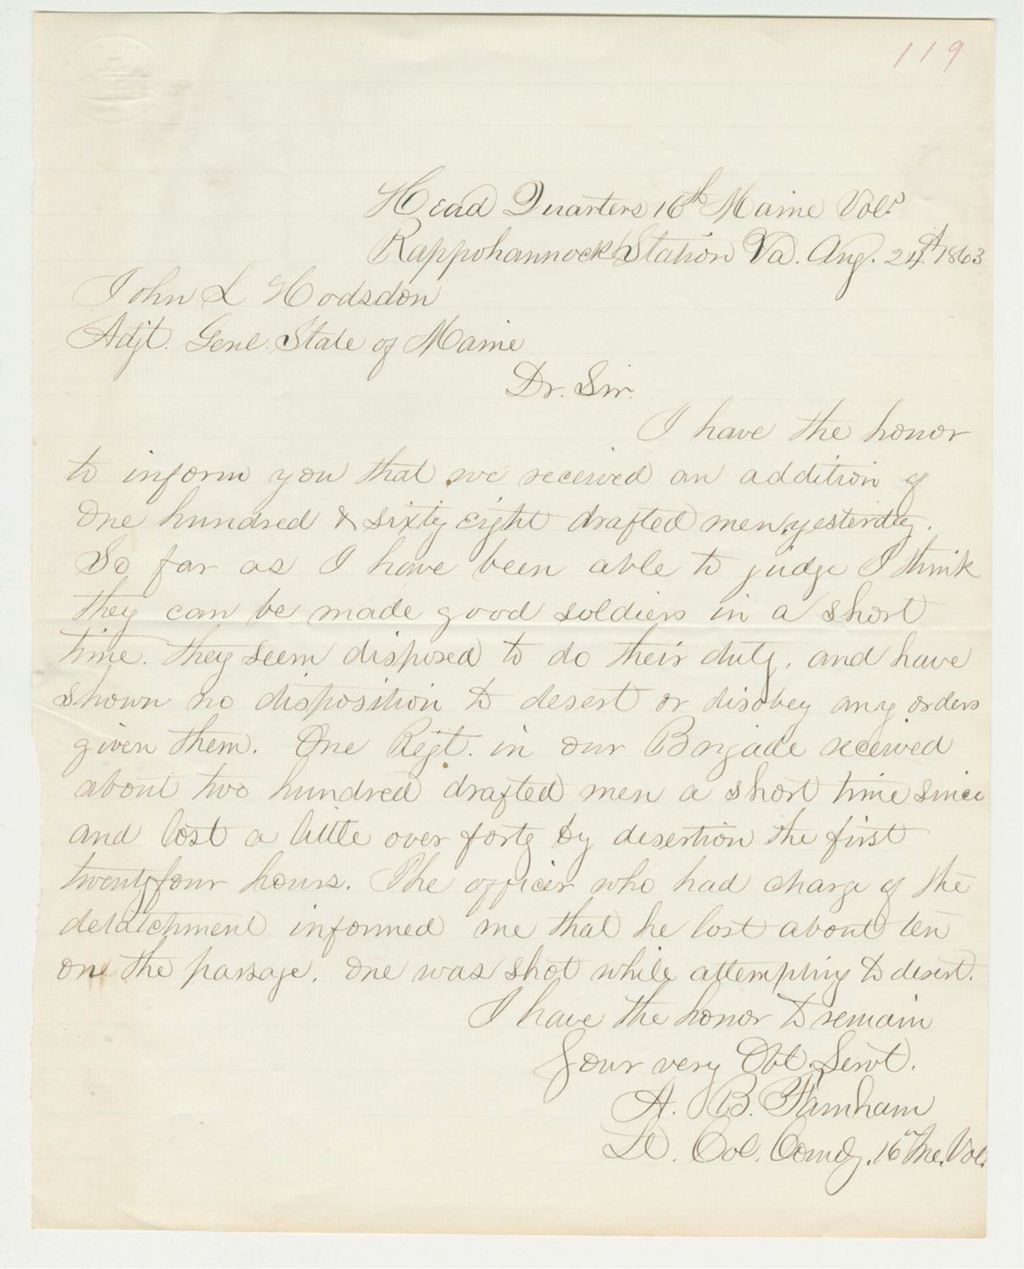 119
Head Quarters 16th Maine Vols
Rappohannock Station Va. Aug. 24th 1863
John L Hodsdon
Adjt. Genl. State of Maine
Dr. Sir.
I have the honor
to inform you that we received an addition of
One hundred & sixty eight drafted men yesterday.
So far as I have been able to judge I think
they can be made good soldiers in a short
time. they seem disposed to do their duty, and have
shown no disposition to desert or disobey any orders
given them. One Regt. in our Brigade received
about two hundred drafted men a short time since
and lost a little over forty by desertion the first
twenty four hours. The officer who had charge of the
detatchment informed me that he lost about ten
on the passage. One was shot while attempting to desert.
I have the honor to remain
Your very Obt. Servt.
A. B. Farnham
Lt. Col. Comdg. 16th Me. Vols.